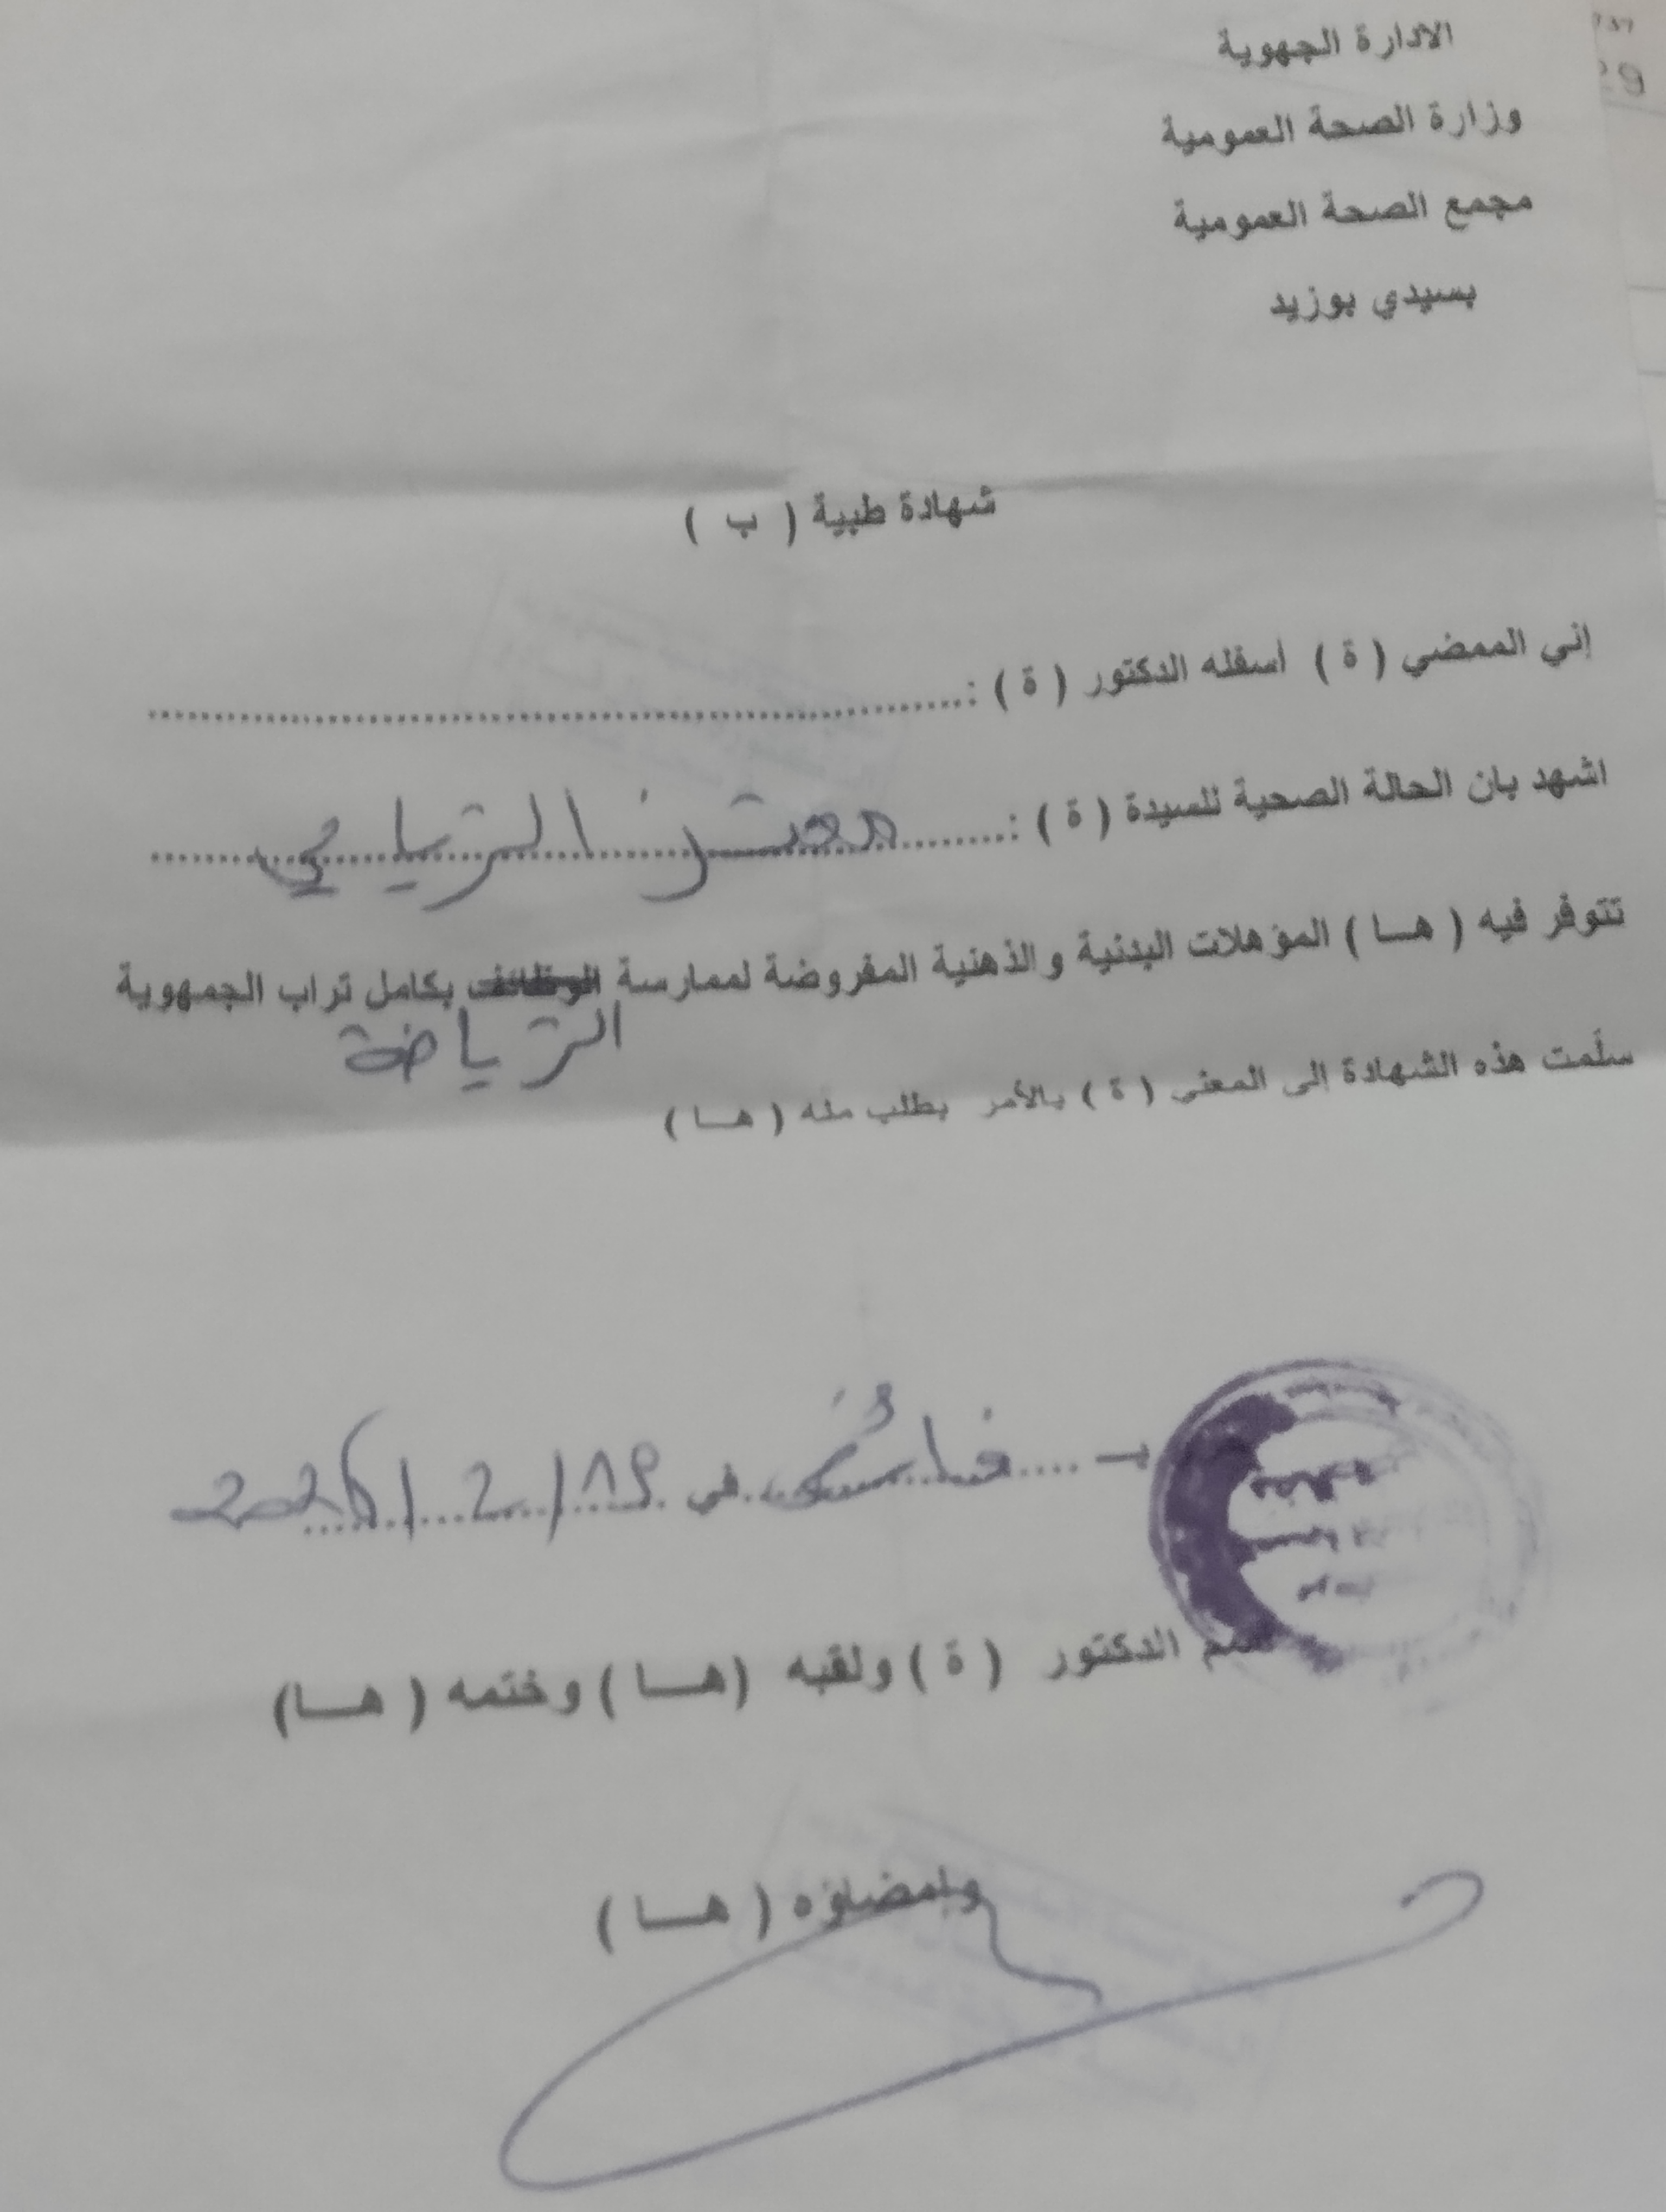 الادارة الجهوية
وزارة الصحة العمومية
مجمع الصحة العمومية
بسيدي بوزيد
شهادة طبية ( ب )
إني الممضي ( ة ) أسفله الدكتور ( ة ) :..........................................................
اشهد بان الحالة الصحية للسيدة ( ة ) :......... معتز الزيايي
تتوفر فيه ( هـا ) المؤهلات البدنية والذهنية المفروضة لممارسة الوظائف بكامل تراب الجمهورية
الرياضة
سلّمت هذه الشهادة إلى المعني ( ة ) بالأمر بطلب منه ( هـا )
في 19/2/2026
الدكتور ( ة ) ولقبه (هـا ) وختمه ( هـا)
وإمضاؤه ( هـا )